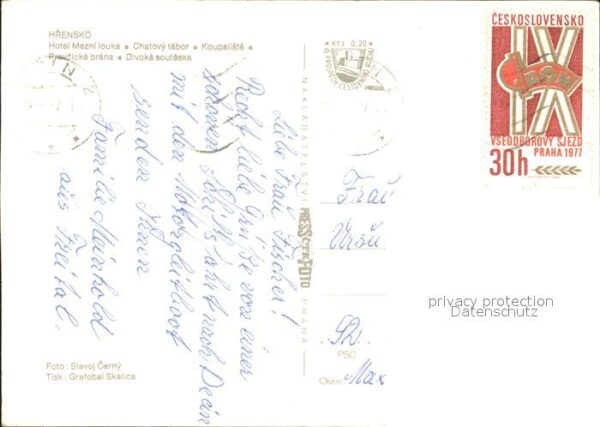 HŘENSKO
Hotel Mezní louka • Chatový tábor • Koupaliště •
Pravčická brána • Divoká soutěska
Liebe Frau Fischer!
Recht liebe Grüße von einer
schönen Schiffsfahrt nach Decin
mit dem Motorgleitboot
senden Ihnen
Familie Meinhold
aus Freital.
Foto: Slavoj Černý
Tisk: Grafobal Skalica
NAKLADATELSTVÍ PRESSFOTO PRAHA
Kčs 0,20
Frau
PSČ
Okres
Max
ČESKOSLOVENSKO
IX
ROH
VŠEODBOROVÝ SJEZD
PRAHA 1977
30h
privacy protection
Datenschutz